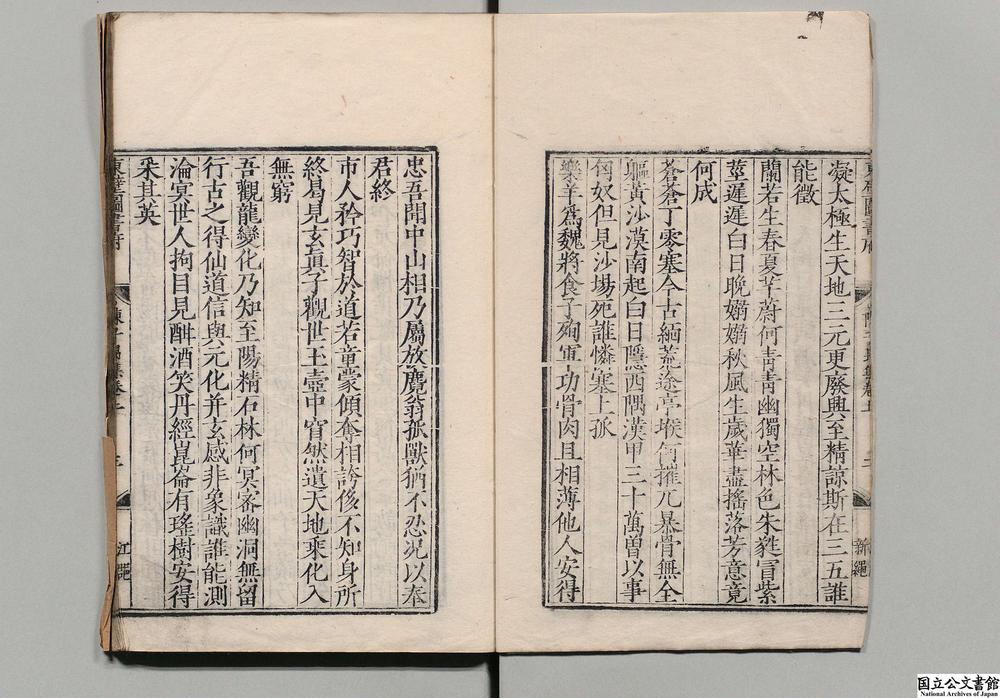 凝太極生天地三元更廢興至精諒斯在三五誰
能徵
蘭若生春夏芊蔚何青青幽獨空林色朱蕤冒紫
莖遲遲白日晚嫋嫋秋風生歲華盡搖落芳意竟
何成
蒼蒼丁零塞今古緬荒途亭堠何摧兀暴骨無全
軀黃沙漠南起白日隱西隅漢甲三十萬曾以事
匈奴但見沙場死誰憐塞上孤
樂羊爲魏將食子殉軍功骨肉且相薄他人安得
忠吾聞中山相乃屬放麑翁孤獸猶不忍况以奉
君終
市人矜巧智於道若童蒙傾奪相誇侈不知身所
終曷見玄眞子觀世玉壺中窅然遺天地乘化入
無窮
吾觀龍變化乃知至陽精石林何冥密幽洞無留
行古之得仙道信與元化并玄感非象識誰能測
淪冥世人拘目見酣酒笑丹經崑崙有瑤樹安得
采其英
東壁圖書府
国立公文書館
National Archives of Japan